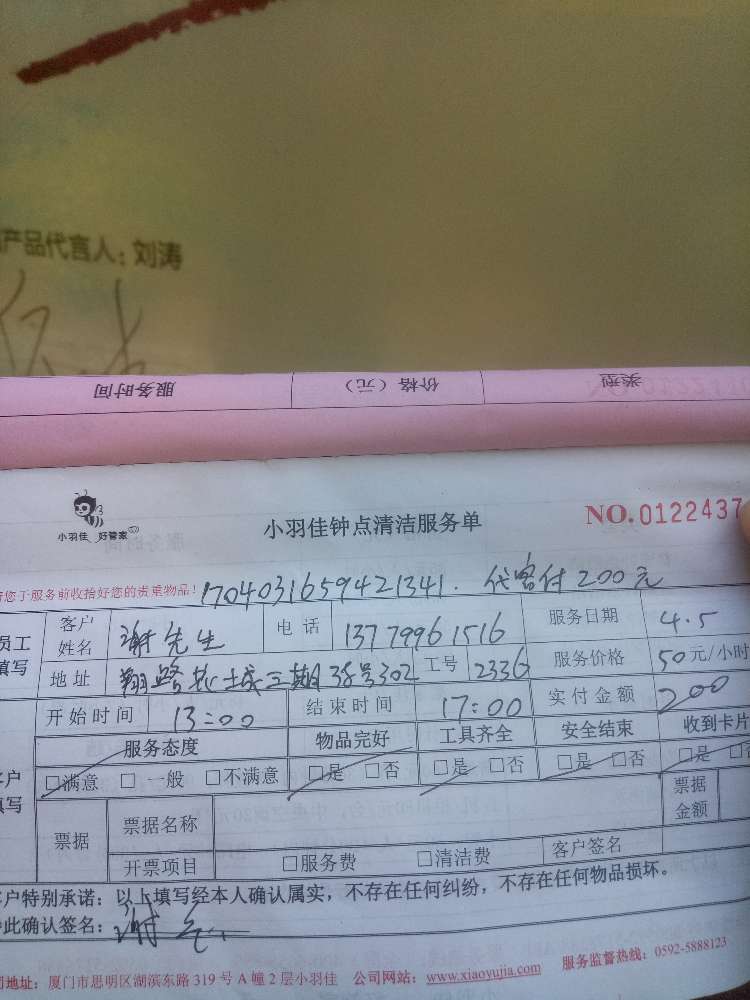 产品代言人：刘涛
服务时间 价格（元） 类型
小羽佳 好管家
小羽佳钟点清洁服务单 NO.0122437
请您于服务前收拾好您的贵重物品！1704031659421341. 代客付200元
员工填写 客户姓名 谢先生 电话 13779961516 服务日期 4.5
地址 三期38号302 工号 2336 服务价格 50元/小时
开始时间 13:00 结束时间 17:00 实付金额 200
客户填写 服务态度 物品完好 工具齐全 安全结束 收到卡片
□满意 □一般 □不满意 □是 □否 □是 □否 □是 □否 □是 □否
票据 票据名称 票据金额
开票项目 □服务费 □清洁费 客户签名
客户特别承诺：以上填写经本人确认属实，不存在任何纠纷，不存在任何物品损坏。
此确认签名：谢
地址：厦门市思明区湖滨东路319号A幢2层小羽佳 公司网站：www.xiaoyujia.com 服务监督热线：0592-5888123